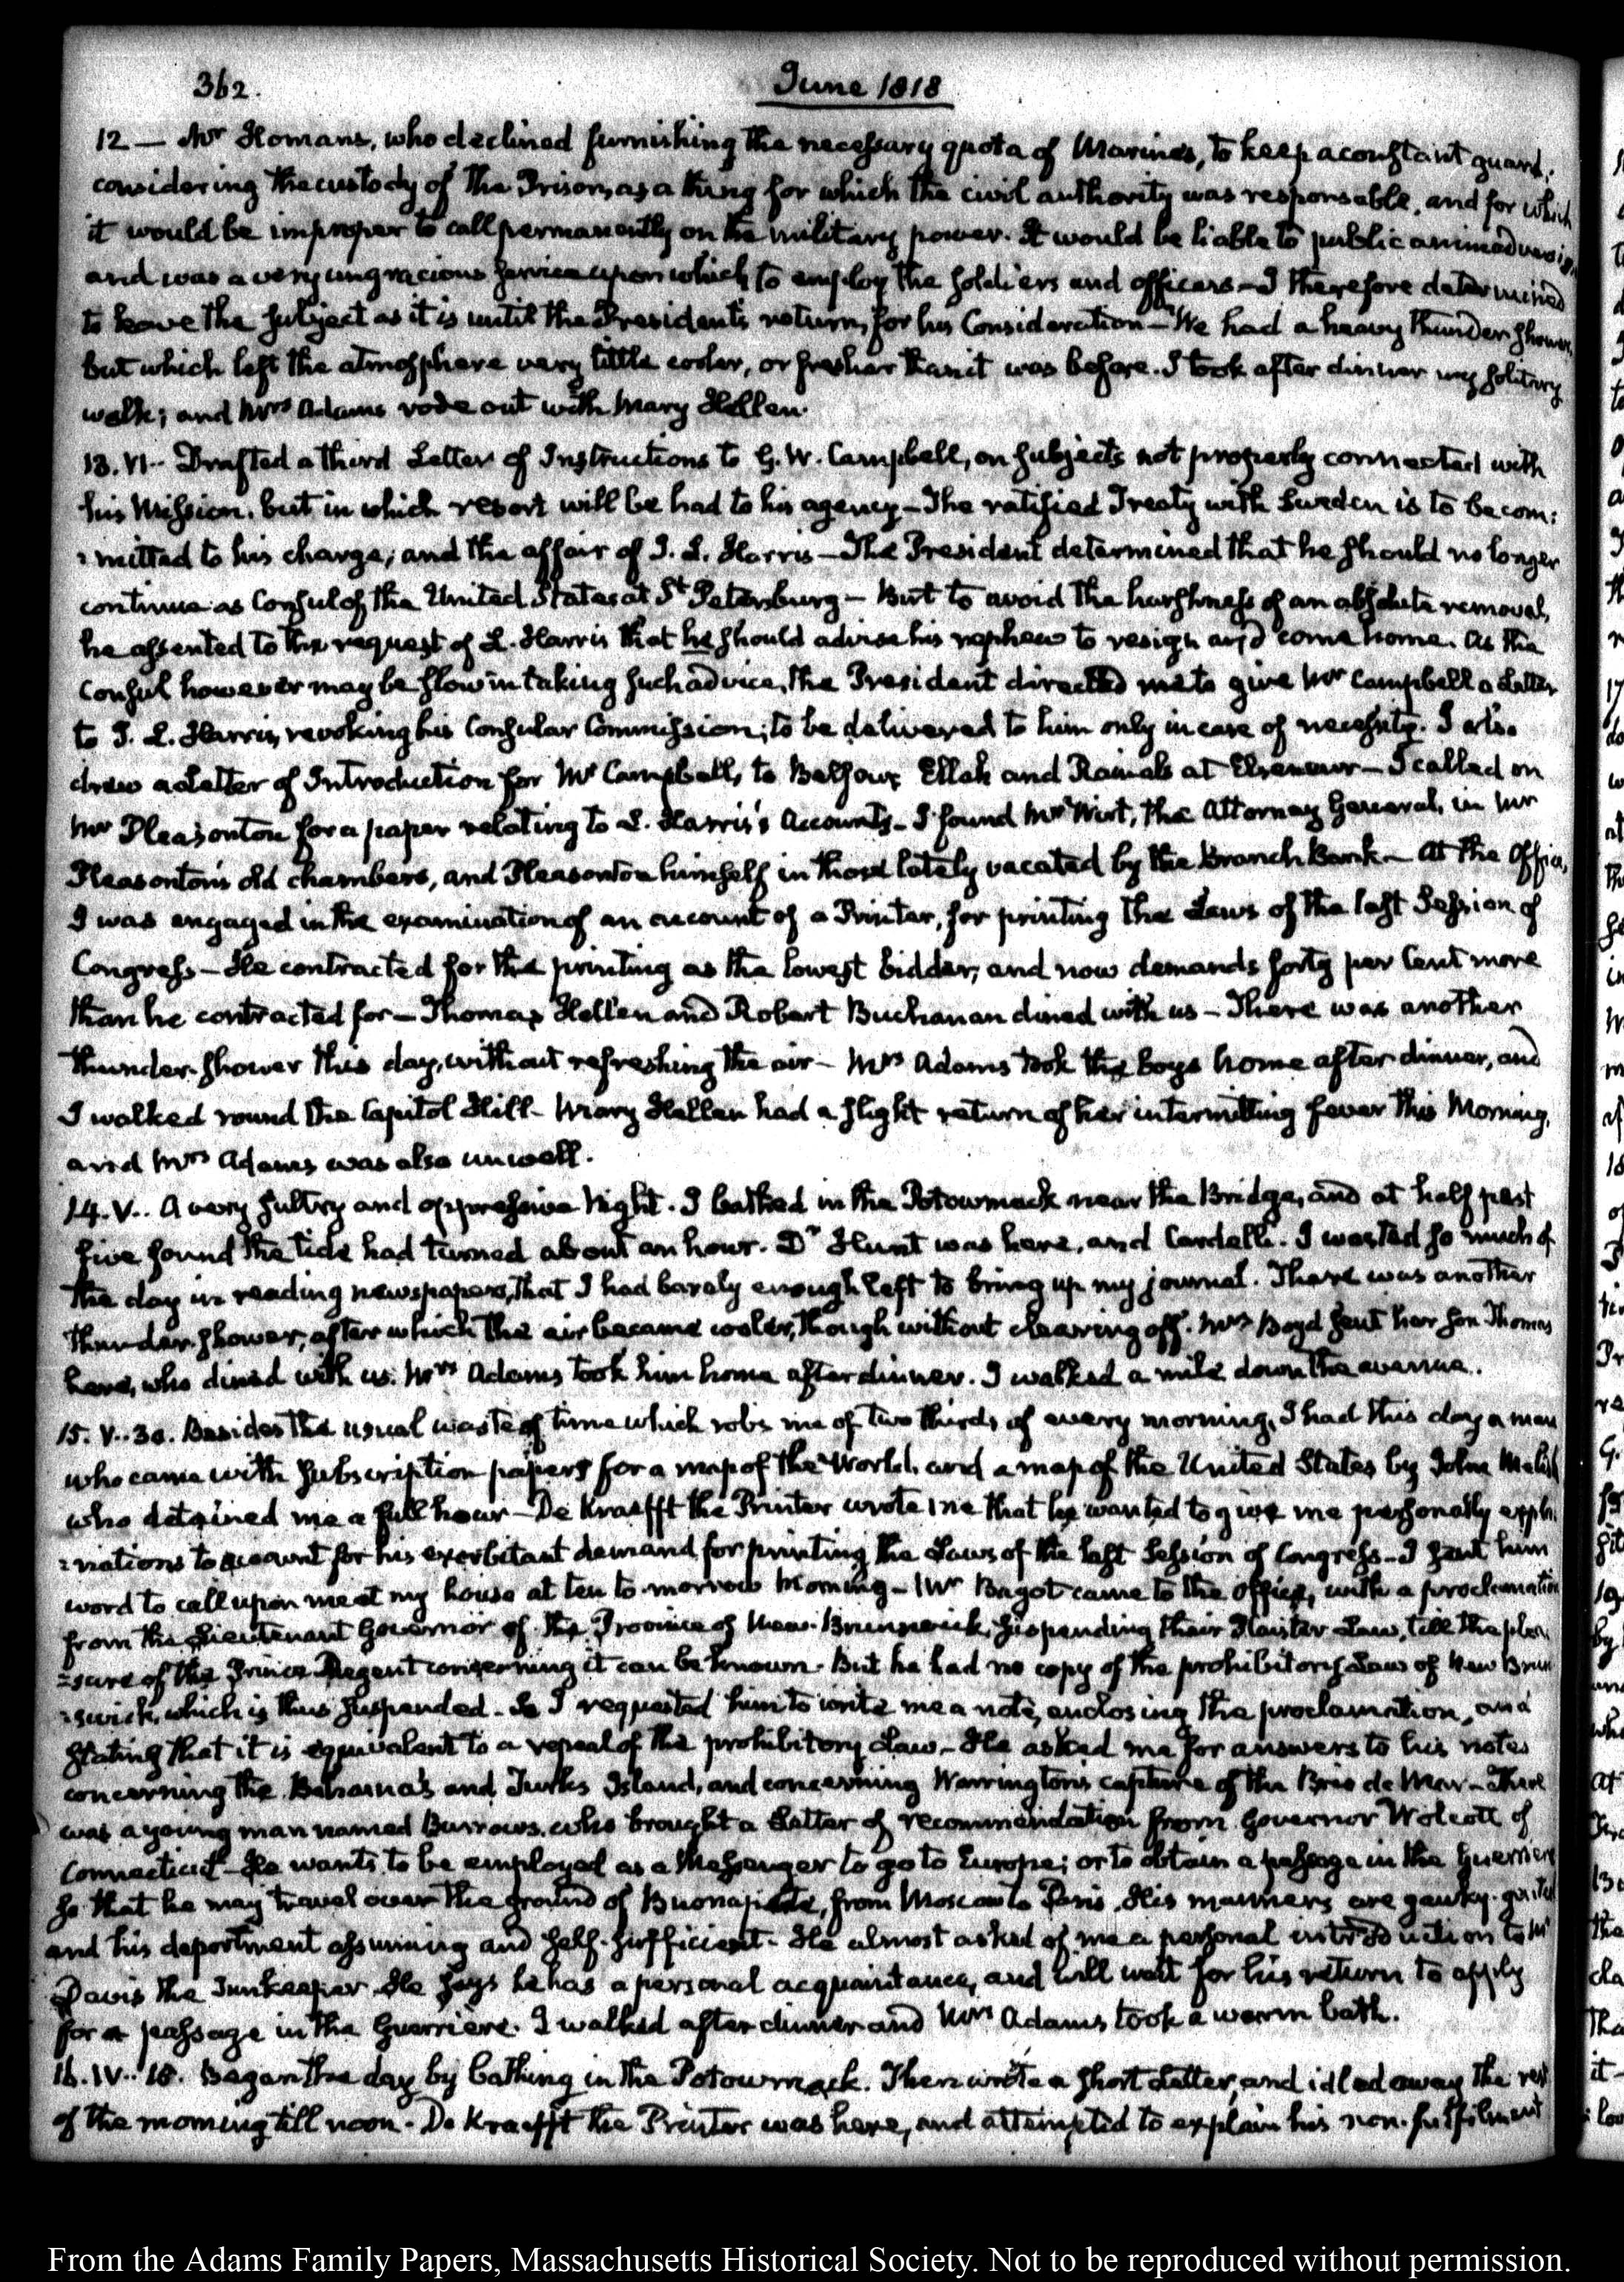 362.
June 1818
12 — Mr Homans, who declined furnishing the necessary quota of Marines, to keep a constant guard.
considering the custody of the Prison, as a thing for which the civil authority was responsable, and for which
it would be improper to call permanently on the military power. It would be liable to public animadversion
and was a very ungracious service upon which to employ the soldiers and officers — I therefore determined
to leave the subject as it is until the President's return, for his Consideration — We had a heavy thunder shower,
but which left the atmosphere very little cooler, or fresher than it was before. I took after dinner my solitary
walk; and Mrs Adams rode out with Mary Hellen.
13. VI.. Drafted a third Letter of Instructions to G. W. Campbell, on subjects not properly connected with
his Mission, but in which resort will be had to his agency — The ratified Treaty with Sweden is to be com:
:mitted to his charge; and the affair of J. L. Harris — The President determined that he should no longer
continue as Consul of the United States at St Petersburg — But to avoid the harshness of an absolute removal,
he assented to the request of L. Harris that he should advise his nephew to resign and come home. As the
Consul however may be slow in taking such advice, the President directed me to give Mr Campbell a Letter
to J. L. Harris, revoking his Consular Commission; to be delivered to him only in case of necessity. I also
drew a Letter of Introduction for Mr Campbell, to Balfour Ellah and Rainals at Elseneur — I called on
Mr Pleasonton for a paper relating to L. Harris's Accounts — I found Mr Wirt, the Attorney General, in Mr
Pleasonton's old chambers, and Pleasonton himself in those lately vacated by the Branch Bank — At the Office,
I was engaged in the examination of an account of a Printer, for printing the Laws of the last Session of
Congress — He contracted for the printing as the lowest bidder, and now demands forty per Cent more
than he contracted for — Thomas Hellen and Robert Buchanan dined with us — There was another
thunder-shower this day, without refreshing the air — Mrs Adams took the boys home after dinner, and
I walked round the Capitol Hill — Mary Hellen had a slight return of her intermitting fever this Morning,
and Mrs Adams was also unwell.
14. V.. A very sultry and oppressive Night. I bathed in the Potowmack near the Bridge, and at half past
five found the tide had turned about an hour. Dr Hunt was here, and Cardelli. I wasted so much of
the day in reading newspapers, that I had barely enough left to bring up my journal. There was another
thunder-shower, after which the air became cooler, though without clearing off. Mrs Boyd sent her Son Thomas
here, who dined with us. Mrs Adams took him home after dinner. I walked a mile down the avenue.
15. V..30. Besides the usual waste of time which robs me of two thirds of every morning, I had this day a man
who came with subscription papers for a map of the World, and a map of the United States by John Melish
who detained me a full hour — De Krafft the Printer wrote me that he wanted to give me personally expla:
:nations to account for his exorbitant demand for printing the Laws of the last Session of Congress — I sent him
word to call upon me at my house at ten to-morrow Morning — Mr Bagot came to the office, with a proclamation
from the Lieutenant Governor of the Province of New-Brunswick, suspending their Plaister Law, till the plea
:sure of the Prince Regent concerning it can be known. But he had no copy of the prohibitory Law of New Brun
:swick, which is thus suspended. So I requested him to write me a note, enclosing the proclamation, and
stating that it is equivalent to a repeal of the prohibitory Law — He asked me for answers to his notes
concerning the Bahama's and Turks Island, and concerning Warrington's capture of the Brio de Mar — There
was a young man named Burrows, who brought a Letter of recommendation from Governor Wolcott of
Connecticut — He wants to be employed as a Messenger to go to Europe; or to obtain a passage in the Guerriere
so that he may travel over the ground of Buonaparte, from Moscow to Paris. His manners are
and his deportment assuming and self-sufficient. He almost asked of me a personal introduction to Mr
Davis the Innkeeper. He says he has a personal acquaintance, and will wait for his return to apply
for a passage in the Guerriere. I walked after dinner and Mrs Adams took a warm bath.
16. IV..15. Began the day by bathing in the Potowmack. Then wrote a short Letter, and idled away the rest
of the morning till noon. De Krafft the Printer was here, and attempted to explain his non-fulfilment
From the Adams Family Papers, Massachusetts Historical Society. Not to be reproduced without permission.